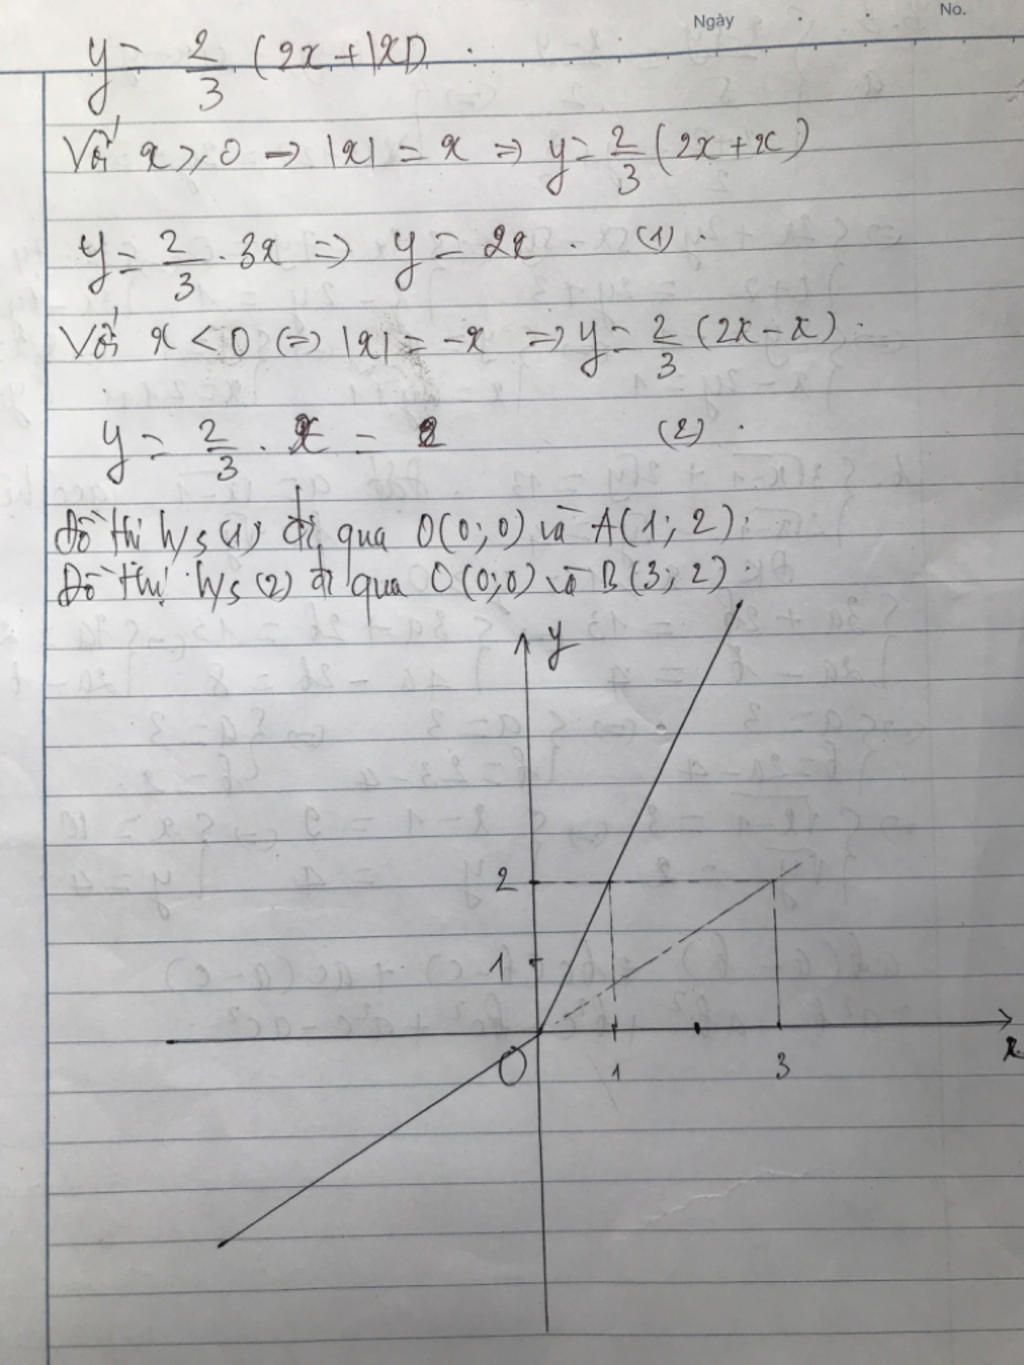 Ngày No.
y = 2/3 (2x + |x|).
Với x ≥ 0 → |x| = x ⇒ y = 2/3 (2x + x)
y = 2/3 . 3x ⇒ y = 2x . (1) .
Với x < 0 (⇒ |x| = -x ⇒ y = 2/3 (2x - x) .
y = 2/3 . x = (2) .
Đồ thị h/s (1) đi qua O(0; 0) và A(1; 2) .
Đồ thị h/s (2) đi qua O(0; 0) và B(3; 2) .
y
2
1
O 1 3 x